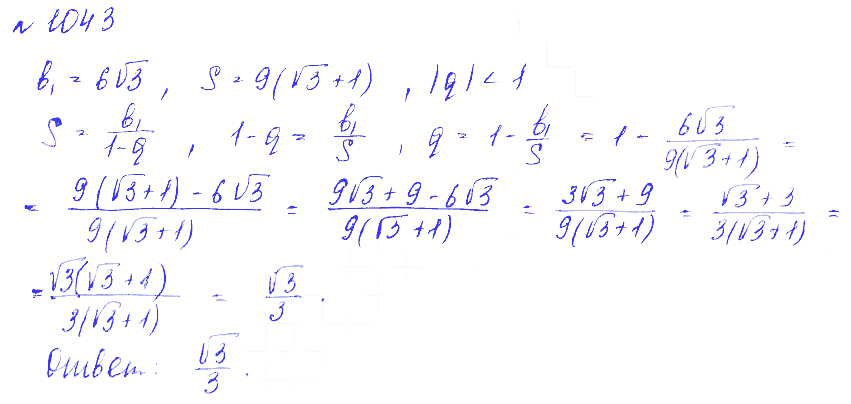 № 1043
b₁ = 6√3, S = 9(√3+1), |q| < 1
S = b₁/(1-q), 1-q = b₁/S, q = 1 - b₁/S = 1 - 6√3/(9(√3+1)) =
= (9(√3+1) - 6√3)/(9(√3+1)) = (9√3+9-6√3)/(9(√3+1)) = (3√3+9)/(9(√3+1)) = (√3+3)/(3(√3+1)) =
= √3(√3+1)/(3(√3+1)) = √3/3.
Ответ: √3/3.